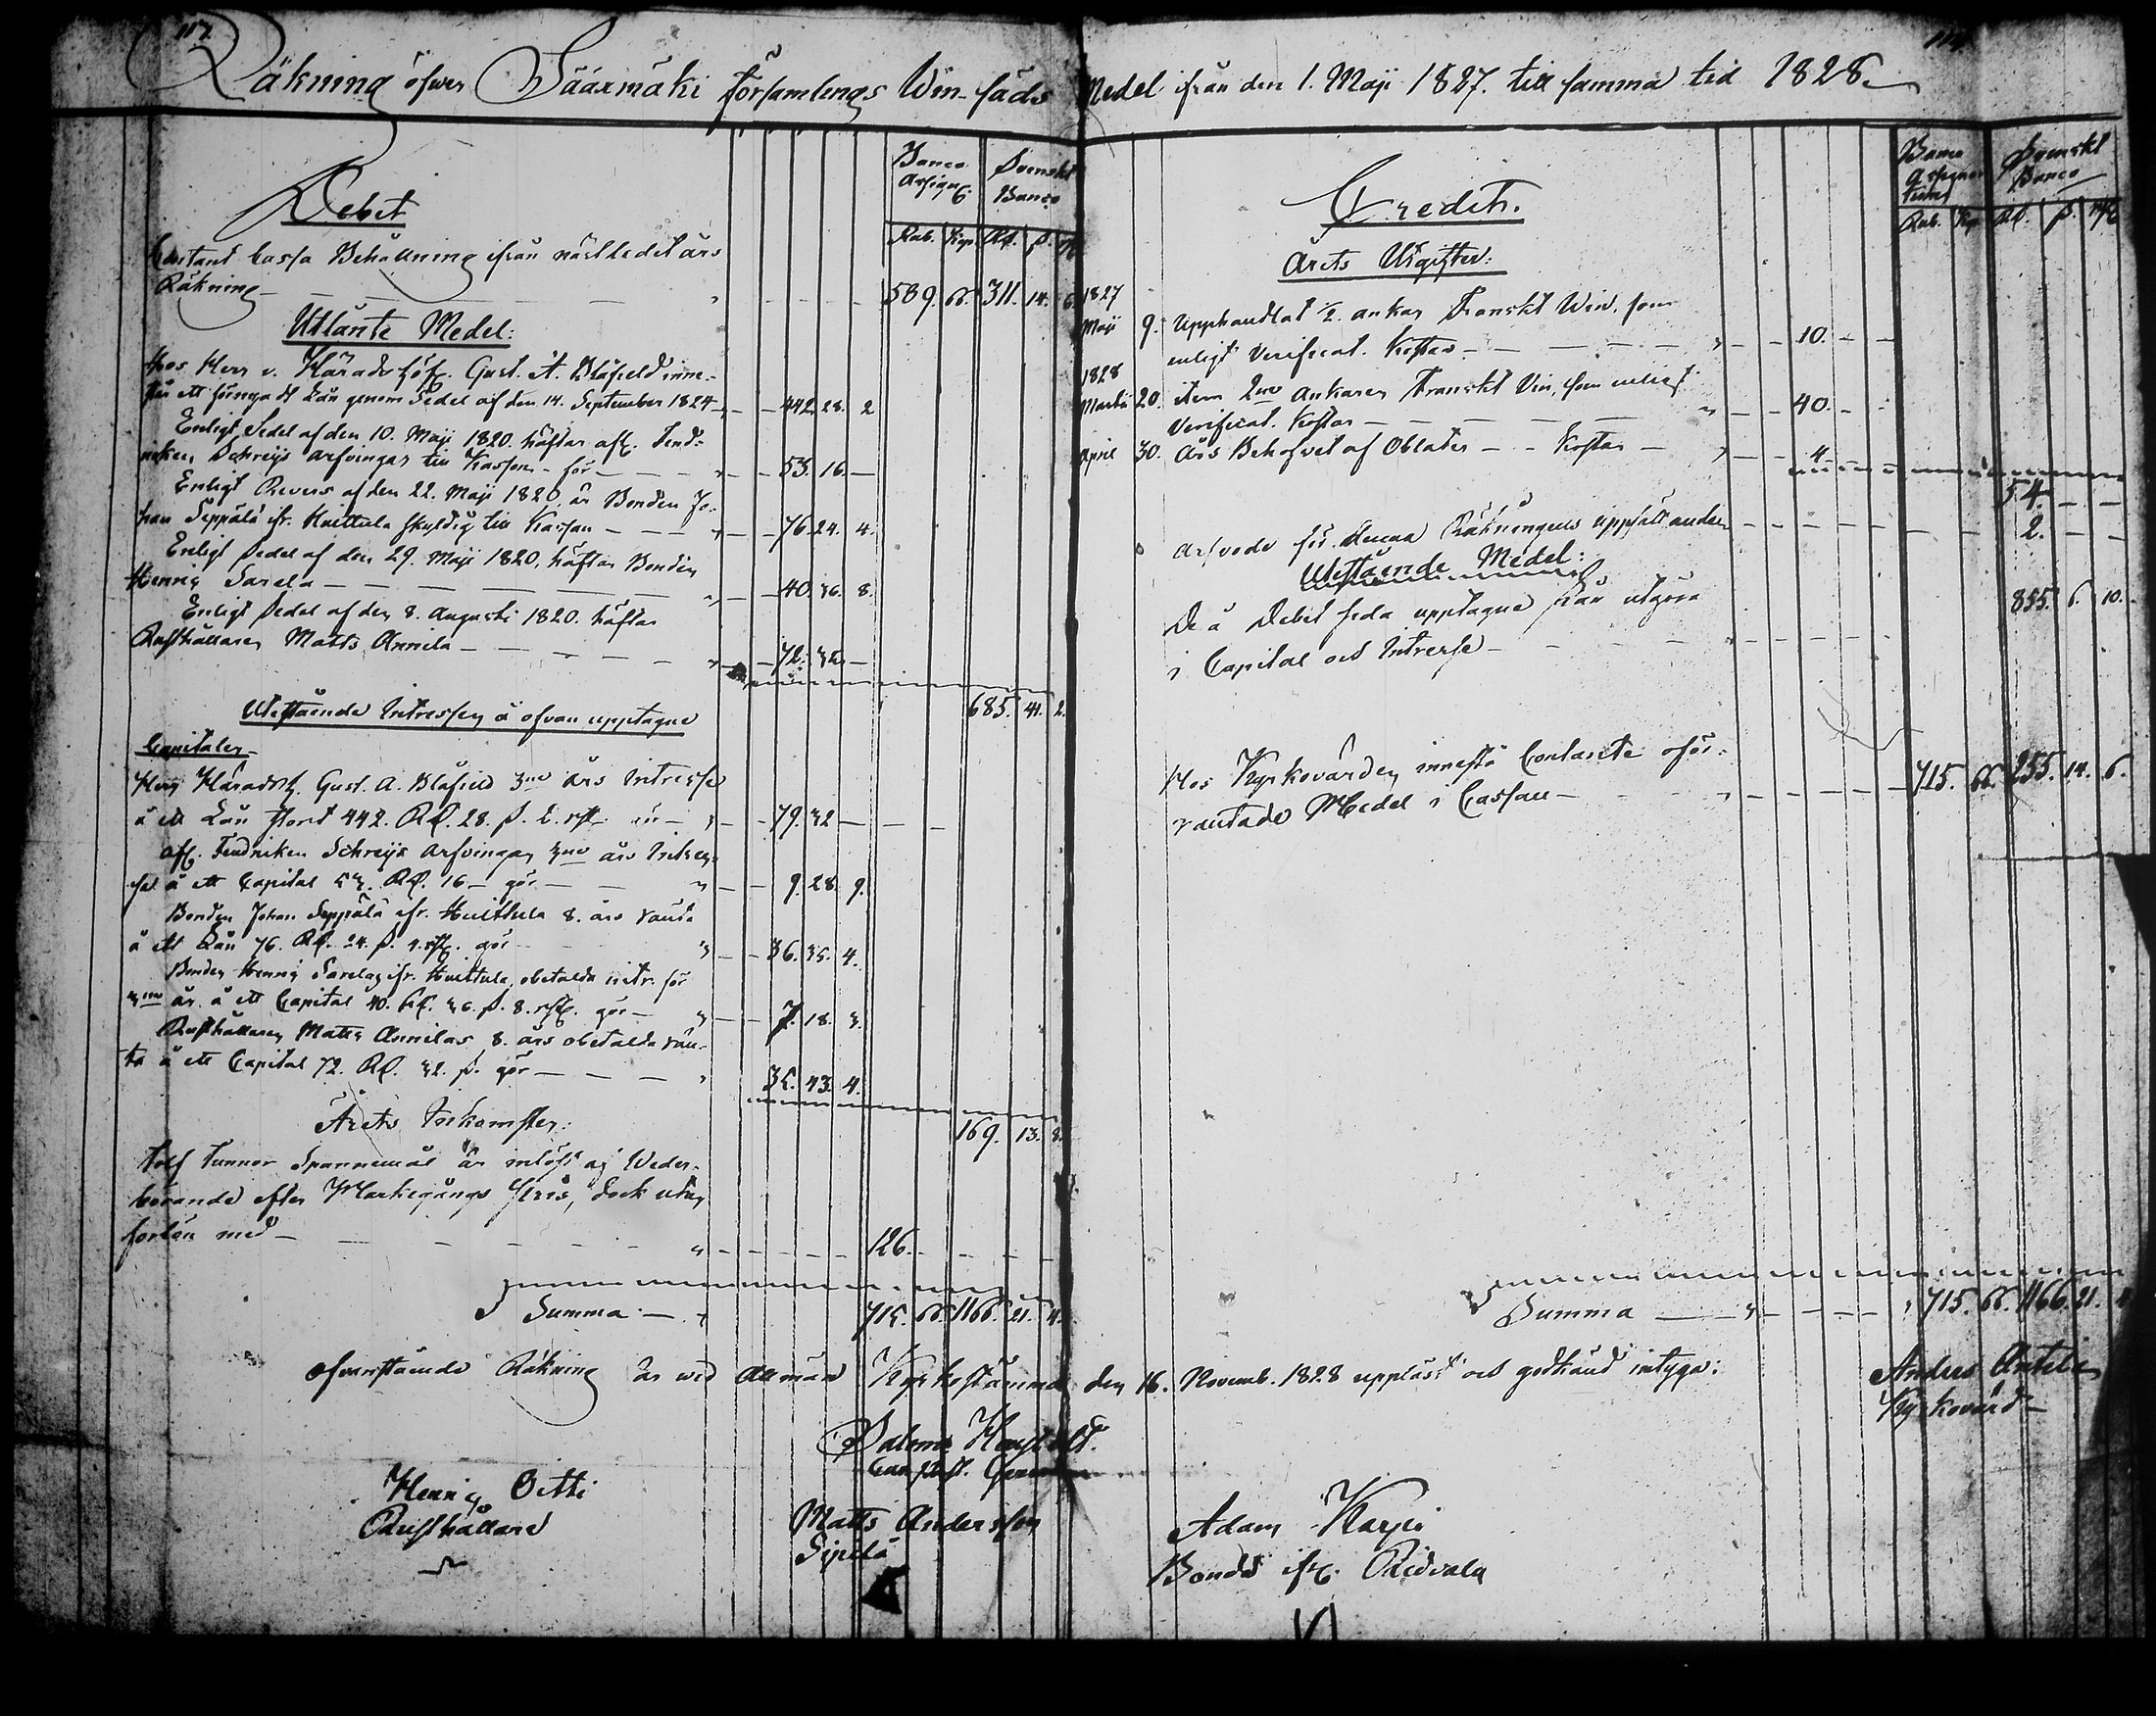 117.
Räkning öfwer Sääxmäki Församlings Win-säds Medel ifrån den 1. Maji 1827. till samma tid 1828.
Debet
Banco Assign.
Svenskt Banco
Rub. Kop. Rd. ß.
Contant Cassa Behållning ifrån nästledit års
Räkning - 589. 66. 311. 14. 6.
Utlånte Medel:
Hos Herr v. Häradshöf. Gust. A. Blåfield inne-
står ett förnyadt Lån genom Sedel af den 14. September 1824 - 442. 28. 2
Enligt Sedel af den 10. Maji 1820. häftar afl. Fend-
riken Schreijs arfvingar till Kassan - för - 53. 16. -
Enligt Revers af den 22. Maji 1820, är Bonden Jo-
han Seppälä ifr. Huittula skyldig till Kassan - 76. 24. 4.
Enligt Sedel af den 29. Maji 1820, häftar Bonden
Henric Sarela - 40. 36. 8.
Enligt Sedel af den 8. Augusti 1820. häftar
Rusthållaren Matts Annila - 72. 32. -
685. 41. 2.
Utestående Intressen å ofvan upptagne
Capitaler -
Herr Häradsh. Gust. A. Blåfield 3ne års Intresse
å ett Lån stort 442. Rd. 28. ß. 2. rst. är - 79. 32 -
afl. Fendriken Schreijs Arfvingar 3ne års Intres-
se å ett Capital 53. Rd. 16 - gör - 9. 28. 9.
Bonden Johan Seppälä ifr. Huittula 8. års ränta
å ett Lån 76. Rd. 24. ß. 4. rst. gör - 36. 35. 4.
Bonden Henric Sarela ifr. Huittula, obetalda intr. för
3ne år å ett Capital 40. Rd. 36. ß. 8. rst. gör - 7. 18. 3.
Rusthållaren Matts Annilas 8. års obetalda rän-
ta å ett Capital 72. Rd. 32. ß. gör - 35. 43. 4.
169. 13. 8.
Årets Inkomster:
Tolf Tunnor Spannemål är inlöst af Weder-
börande efter Markegångs Pris, dock utan
forlön med - 126. -
Summa - 715. 66. 1166. 21. 4.
Credit.
Banco Assignationer
Svenskt Banco
Rub. Kop. Rd. ß. rst
Årets Utgifter:
1827
Maji 9. Upphandlat 1/2. ankar Franskt Win, som
enligt Verificat. Kostar - 10. -
1828
Martii 20. item 2ne Ankaren Franskt Vin, som enligt
Verificat. Kostar - 40. -
April 30. Års Behofvet af Oblater - Kostar - 4.
54. -
Arfvode för denna Räkningens uppsättande - 2. -
Utestående Medel:
De å Debet sida upptagne Lån utgöra
i Capital och Intresse - 855. 6. 10.
Hos Kyrkovärden innestå Contante oför-
rantade Medel i Cassan - 715. 66. 255. 14. 6.
Summa - 715. 66. 1166. 21. 4
Ofvanstående Räkning är wid Allmän Kyrkostämma den 16. Novemb. 1828 uppläst och godkänd intyga:
Anders Antila
Kyrkovärd -
Salomo
Henric Oetti
Rusthållare
Matts Andersson
Sipilä
Adam Karpi
Bonde ifr. Ridvala